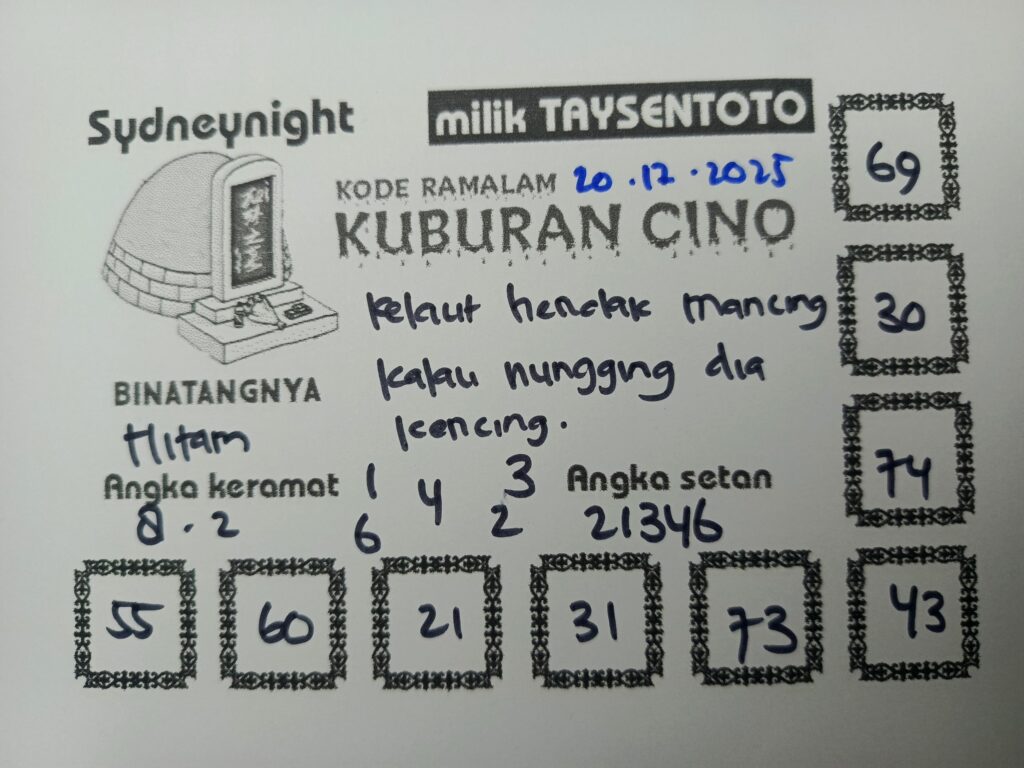 Sydneynight
milik TAYSENTOTO
KODE RAMALAM 20.12.2025
KUBURAN CINO
kelaut hendak mancing
kalau nungging dia
kencing.
BINATANGNYA
Hitam
Angka keramat
8.2
1 4 3
6 2
Angka setan
21346
69
30
74
55 60 21 31 73 43